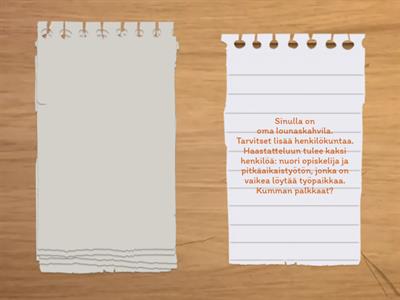 Sinulla on
oma lounaskahvila.
Tarvitset lisää henkilökuntaa.
Haastatteluun tulee kaksi
henkilöä: nuori opiskelija ja
pitkäaikaistyötön, jonka on
vaikea löytää työpaikkaa.
Kumman palkkaat?